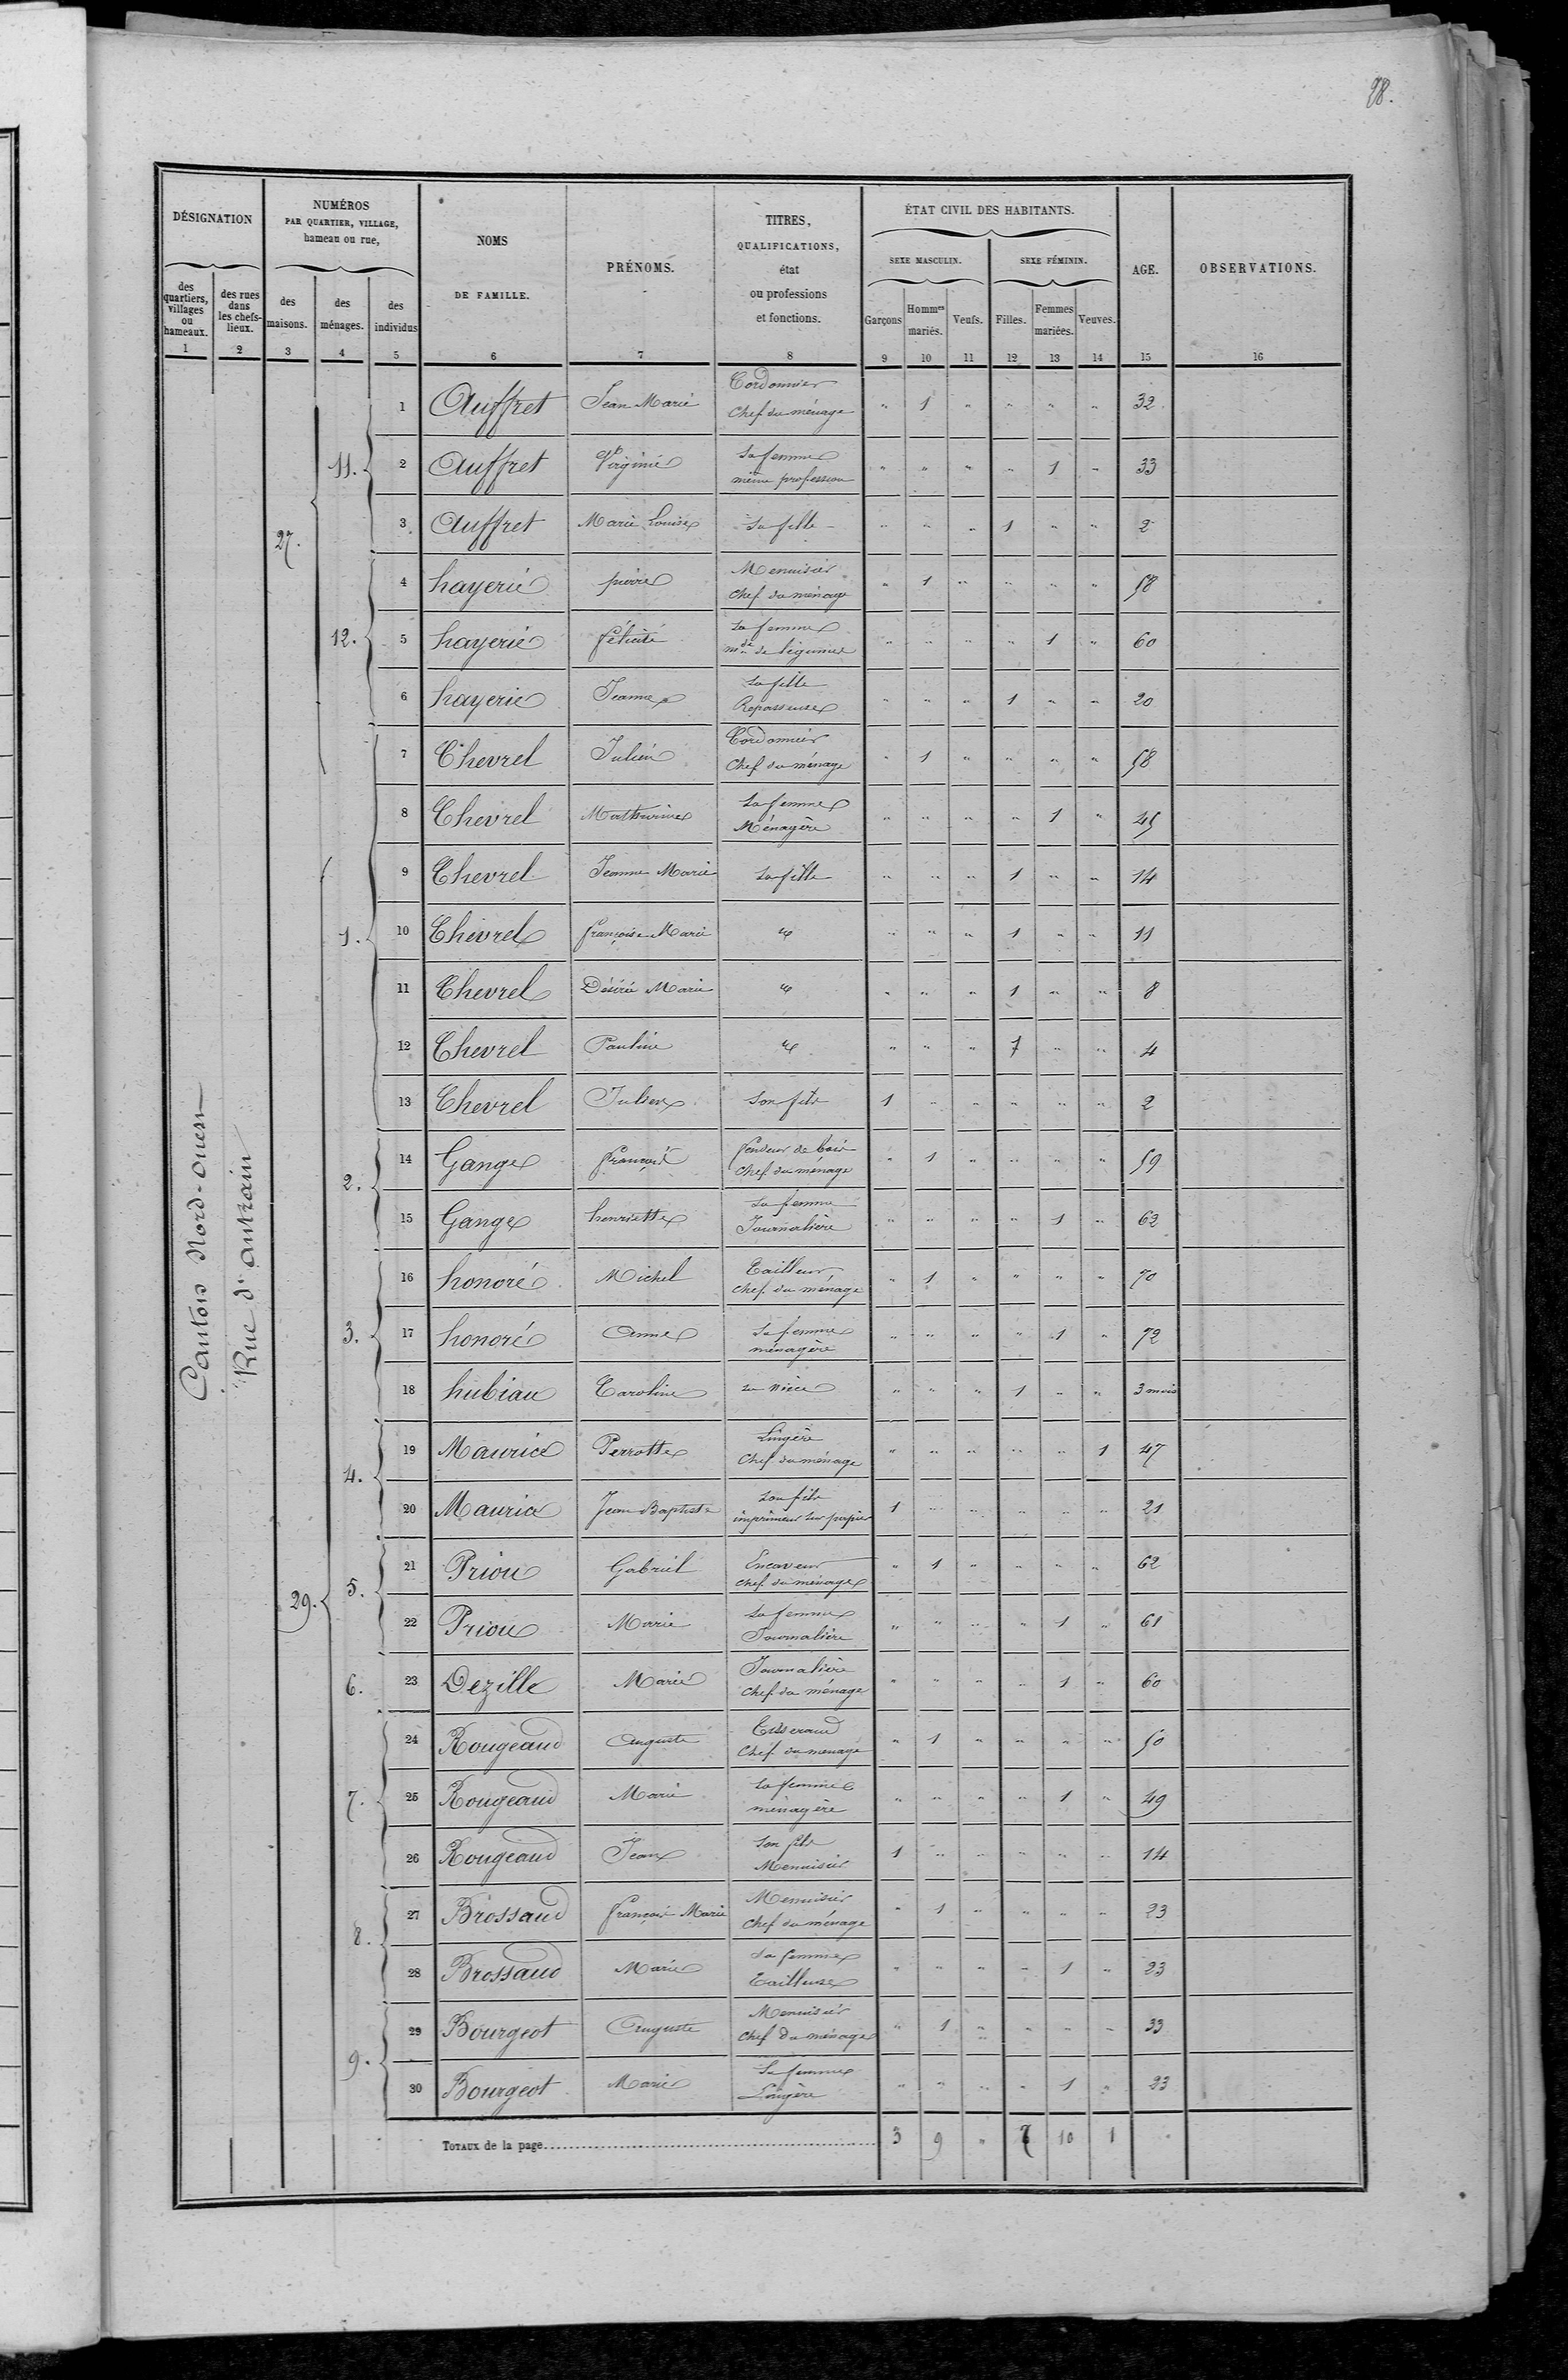 98.
DÉSIGNATION
NUMÉROS
PAR QUARTIER, VILLAGE,
hameau ou rue,
NOMS
DE FAMILLE.
PRÉNOMS.
TITRES,
QUALIFICATIONS,
état
ou professions
et fonctions.
ÉTAT CIVIL DES HABITANTS.
SEXE MASCULIN.
SEXE FÉMININ.
AGE.
OBSERVATIONS.
des quartiers, villages ou hameaux.
des rues dans les chefs-lieux.
des maisons.
des ménages.
des individus
Garçons
Hommes mariés.
Veufs.
Filles.
Femmes mariées.
Veuves.
1 2 3 4 5 6 7 8 9 10 11 12 13 14 15 16
Canton Nord-ouest
Rue d'antrain
27.
11.
1 Auffret Jean Marie Cordonnier Chef du ménage " 1 " " " " 32
2 Auffret Virginie Sa femme même profession " " " " 1 " 33
3 Auffret Marie Louise Sa fille " " " 1 " " 2
12.
4 hayerie pierre Menuisier Chef du ménage " 1 " " " " 58
5 hayerie félicité Sa femme mde de légumes " " " " 1 " 60
6 hayerie Jeanne Sa fille Repasseuse " " " 1 " " 20
1.
7 Chevrel Julien Cordonnier Chef du ménage " 1 " " " " 58
8 Chevrel Mathurine Sa femme Ménagère " " " " 1 " 45
9 Chevrel Jeanne Marie Sa fille " " " 1 " " 14
10 Chevrel françoise Marie " " " 1 " " 11
11 Chevrel Désirée Marie " " " 1 " " 8
12 Chevrel Pauline " " " 1 " " 4
13 Chevrel Julien Son fils 1 " " " " " 2
29.
2.
14 Gange françois fendeur de bois Chef du ménage " 1 " " " " 59
15 Gange henriette Sa femme Journalière " " " " 1 " 62
3.
16 honoré Michel Tailleur Chef du ménage " 1 " " " " 70
17 honoré Anne Sa femme ménagère " " " " 1 " 72
18 hubiau Caroline Sa nièce " " " 1 " " 3 mois
4.
19 Maurice Perrotte Lingère Chef du ménage " " " " " 1 47
20 Maurice Jean Baptiste Son fils imprimeur sur papier 1 " " " " " 21
5.
21 Priou Gabriel Encaveur Chef du ménage " 1 " " " " 62
22 Priou Marie Sa femme Journalière " " " " 1 " 61
6.
23 Dezille Marie Journalière Chef du ménage " " " " 1 " 60
7.
24 Rougeaud Auguste Tisserand Chef du ménage " 1 " " " " 50
25 Rougeaud Marie Sa femme ménagère " " " " 1 " 49
26 Rougeaud Jean Son fils Menuisier 1 " " " " " 14
8.
27 Brossaud françois Marie Menuisier Chef du ménage " 1 " " " " 23
28 Brossaud Marie Sa femme Tailleuse " " " " 1 " 23
9.
29 Bourgeot Auguste Menuisier Chef du ménage " 1 " " " " 33
30 Bourgeot Marie Sa femme Lingère " " " " 1 " 23
TOTAUX de la page 3 9 " 7 10 1